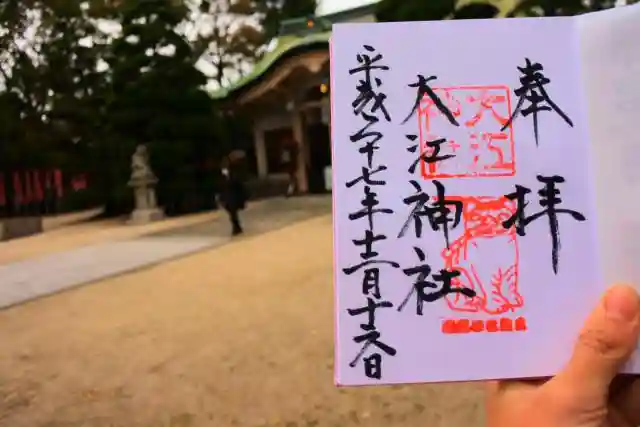 奉拝
大江神社
平成二十七年十二月十六日
大江
神社